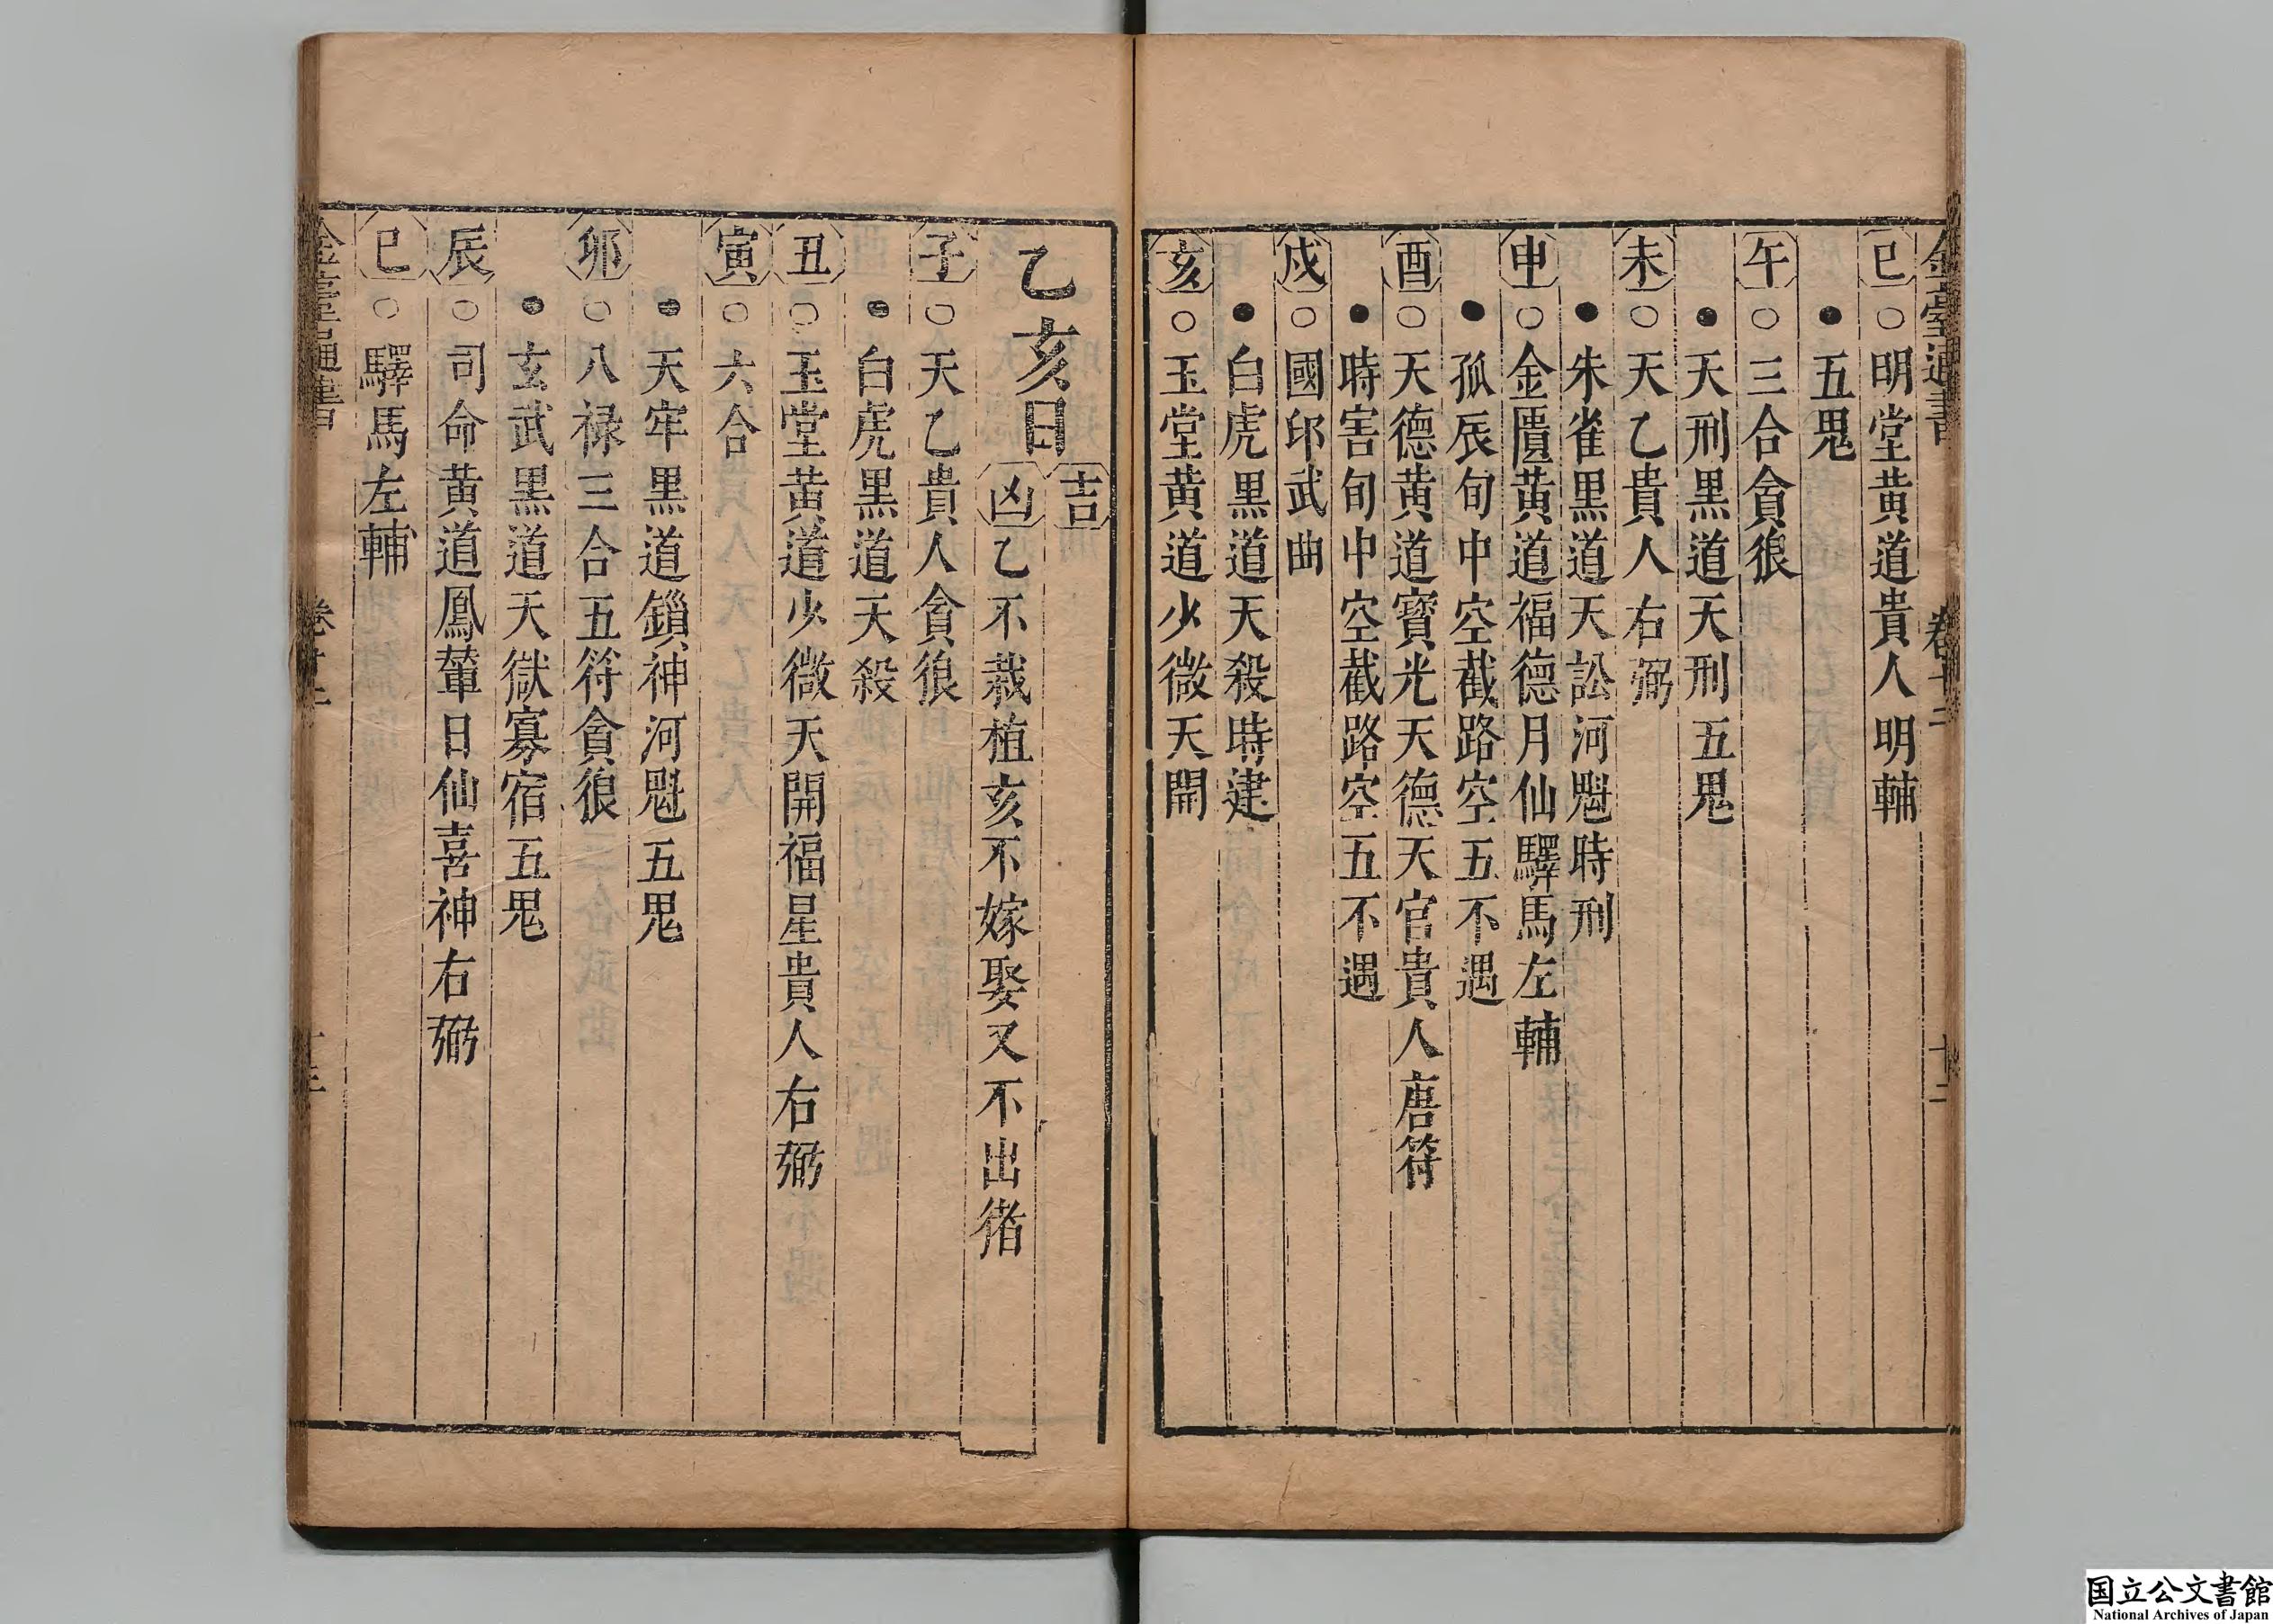 金臺通書 卷十二 十二
巳○明堂黄道貴人明輔
●五鬼
午○三合貪狼
●天刑黒道天刑五鬼
未○天乙貴人右弼
●朱雀黒道天訟河魁時刑
申○金匱黄道福德月仙驛馬左輔
●孤辰旬中空截路空五不遇
酉○天德黄道寳光天德天官貴人唐符
●時害旬中空截路空五不遇
戍○國印武曲
●白虎黒道天殺時建
亥○玉堂黄道少微天開
乙亥日
吉
凶乙不栽植亥不嫁娶又不出猪
子○天乙貴人貪狼
●白虎黒道天殺
丑○玉堂黄道少微天開福星貴人右弼
寅○六合
●天牢黒道鎻神河魁五鬼
卯○八禄三合五符貪狼
●玄武黒道天獄寡宿五鬼
辰○司命黄道鳳輦日仙喜神右弼
巳○驛馬左輔
金臺通書 卷十二 十三
国立公文書館
National Archives of Japan